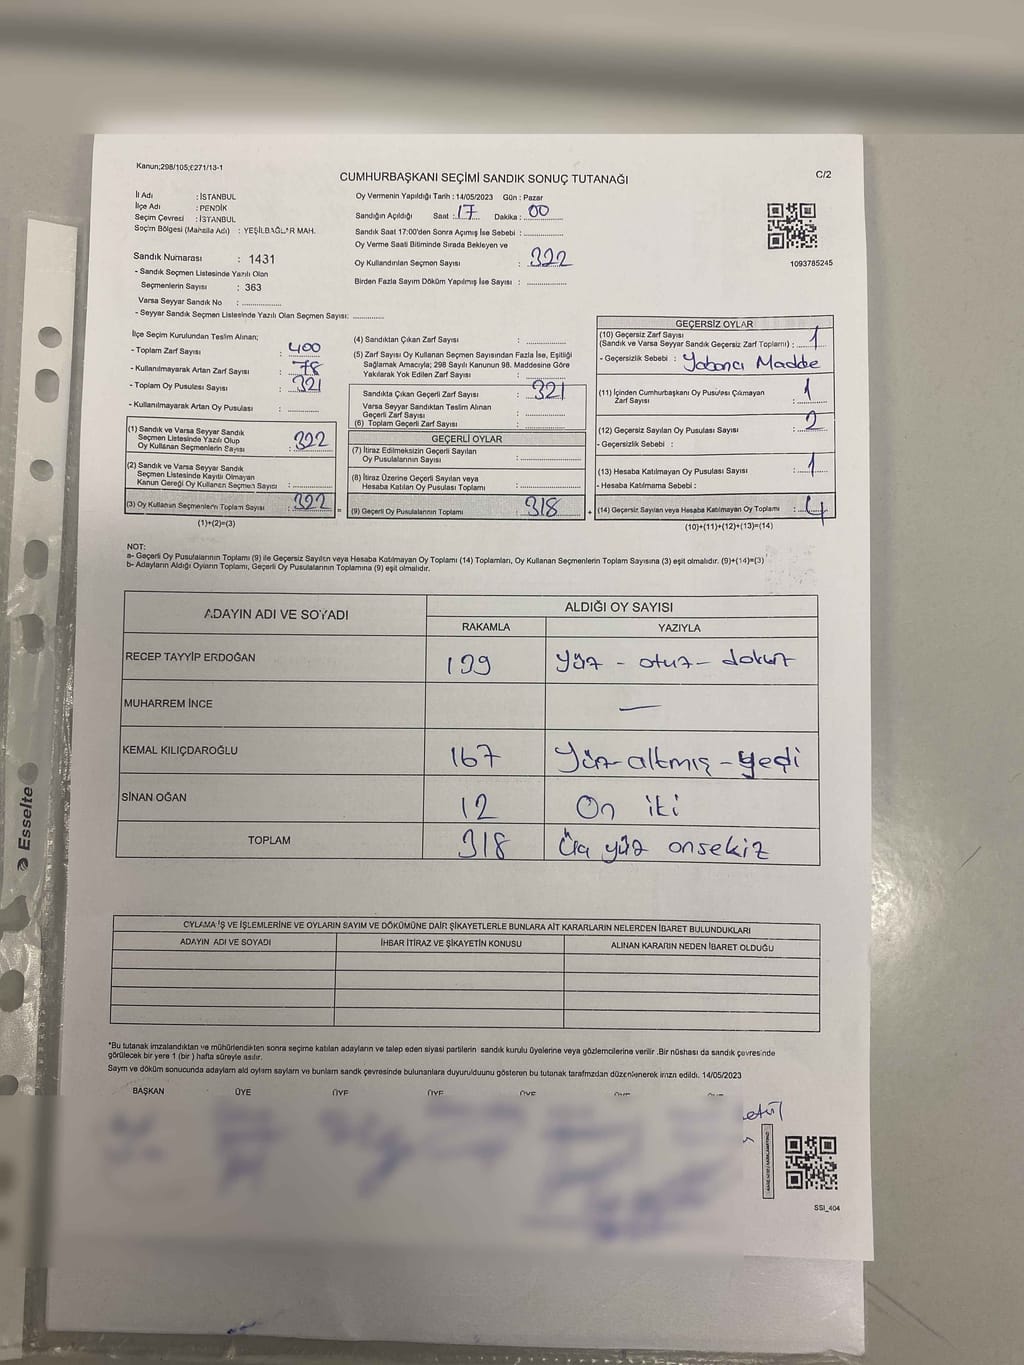 Kanun;298/105;£271/13-1
CUMHURBAŞKANI SEÇİMİ SANDIK SONUÇ TUTANAĞI
C/2
İl Adı : İSTANBUL
İlçe Adı : PENDİK
Seçim Çevresi : İSTANBUL
Seçim Bölgesi (Mahalle Adı) : YEŞİLBAĞLAR MAH.
Sandık Numarası : 1431
- Sandık Seçmen Listesinde Yazılı Olan
Seçmenlerin Sayısı : 363
Varsa Seyyar Sandık No :
- Seyyar Sandık Seçmen Listesinde Yazılı Olan Seçmen Sayısı:
Oy Vermenin Yapıldığı Tarih : 14/05/2023 Gün : Pazar
Sandığın Açıldığı Saat : 17 Dakika : 00
Sandık Saat 17:00'den Sonra Açımış İse Sebebi :
Oy Verme Saati Bitiminde Sırada Bekleyen ve
Oy Kullandırılan Seçmen Sayısı : 322
Birden Fazla Sayım Döküm Yapılmış İse Sayısı :
1093785245
İlçe Seçim Kurulundan Teslim Alınan;
- Toplam Zarf Sayısı : 400
- Kullanılmayarak Artan Zarf Sayısı : 78
- Toplam Oy Pusulası Sayısı : 321
- Kullanılmayarak Artan Oy Pusulası :
(1) Sandık ve Varsa Seyyar Sandık
Seçmen Listesinde Yazılı Olup
Oy Kullanan Seçmenlerin Sayısı : 322
(2) Sandık ve Varsa Seyyar Sandık
Seçmen Listesinde Kayıtlı Olmayan
Kanun Gereği Oy Kullanan Seçmen Sayısı :
(3) Oy Kullanan Seçmenlerin Toplam Sayısı : 322
(1)+(2)=(3)
(4) Sandıktan Çıkan Zarf Sayısı :
(5) Zarf Sayısı Oy Kullanan Seçmen Sayısından Fazla İse, Eşitliği
Sağlamak Amacıyla; 298 Sayılı Kanunun 98. Maddesine Göre
Yakılarak Yok Edilen Zarf Sayısı :
Sandıkta Çıkan Geçerli Zarf Sayısı : 321
Varsa Seyyar Sandıktan Teslim Alınan
Geçerli Zarf Sayısı :
(6) Toplam Geçerli Zarf Sayısı :
GEÇERLİ OYLAR
(7) İtiraz Edilmeksizin Geçerli Sayılan
Oy Pusulalarının Sayısı :
(8) İtiraz Üzerine Geçerli Sayılan veya
Hesaba Katılan Oy Pusulası Toplamı :
= (9) Geçerli Oy Pusulalarının Toplamı : 318
GEÇERSİZ OYLAR
(10) Geçersiz Zarf Sayısı
(Sandık ve Varsa Seyyar Sandık Geçersiz Zarf Toplamı) : 1
- Geçersizlik Sebebi : Yabancı Madde
(11) İçinden Cumhurbaşkanı Oy Pusulası Çıkmayan
Zarf Sayısı : 1
(12) Geçersiz Sayılan Oy Pusulası Sayısı : 2
- Geçersizlik Sebebi :
(13) Hesaba Katılmayan Oy Pusulası Sayısı : 1
- Hesaba Katılmama Sebebi :
+ (14) Geçersiz Sayılan veya Hesaba Katılmayan Oy Toplamı : 4
(10)+(11)+(12)+(13)=(14)
NOT:
a- Geçerli Oy Pusulalarının Toplamı (9) ile Geçersiz Sayılan veya Hesaba Katılmayan Oy Toplamı (14) Toplamları, Oy Kullanan Seçmenlerin Toplam Sayısına (3) eşit olmalıdır. (9)+(14)=(3)
b- Adayların Aldığı Oyların Toplamı, Geçerli Oy Pusulalarının Toplamına (9) eşit olmalıdır.
ADAYIN ADI VE SOYADI ALDIĞI OY SAYISI
RAKAMLA YAZIYLA
RECEP TAYYİP ERDOĞAN 139 Yüz - otuz - dokuz
MUHARREM İNCE —
KEMAL KILIÇDAROĞLU 167 Yüz-altmış-yedi
SİNAN OĞAN 12 On iki
TOPLAM 318 Üç yüz onsekiz
OYLAMA İŞ VE İŞLEMLERİNE VE OYLARIN SAYIM VE DÖKÜMÜNE DAİR ŞİKAYETLERLE BUNLARA AİT KARARLARIN NELERDEN İBARET BULUNDUKLARI
ADAYIN ADI VE SOYADI İHBAR İTİRAZ VE ŞİKAYETİN KONUSU ALINAN KARARIN NEDEN İBARET OLDUĞU
*Bu tutanak imzalandıktan ve mühürlendikten sonra seçime katılan adayların ve talep eden siyasi partilerin sandık kurulu üyelerine veya gözlemcilerine verilir .Bir nüshası da sandık çevresinde
görülecek bir yere 1 (bir ) hafta süreyle asılır.
Sayım ve döküm sonucunda adayların ald oyların sayların ve bunların sandk çevresinde bulunanlara duyurulduunu gösteren bu tutanak tarafmzdan düzenlenerek imza edildi. 14/05/2023
BAŞKAN ÜYE ÜYE ÜYE ÜYE
SSI_404
Esselte